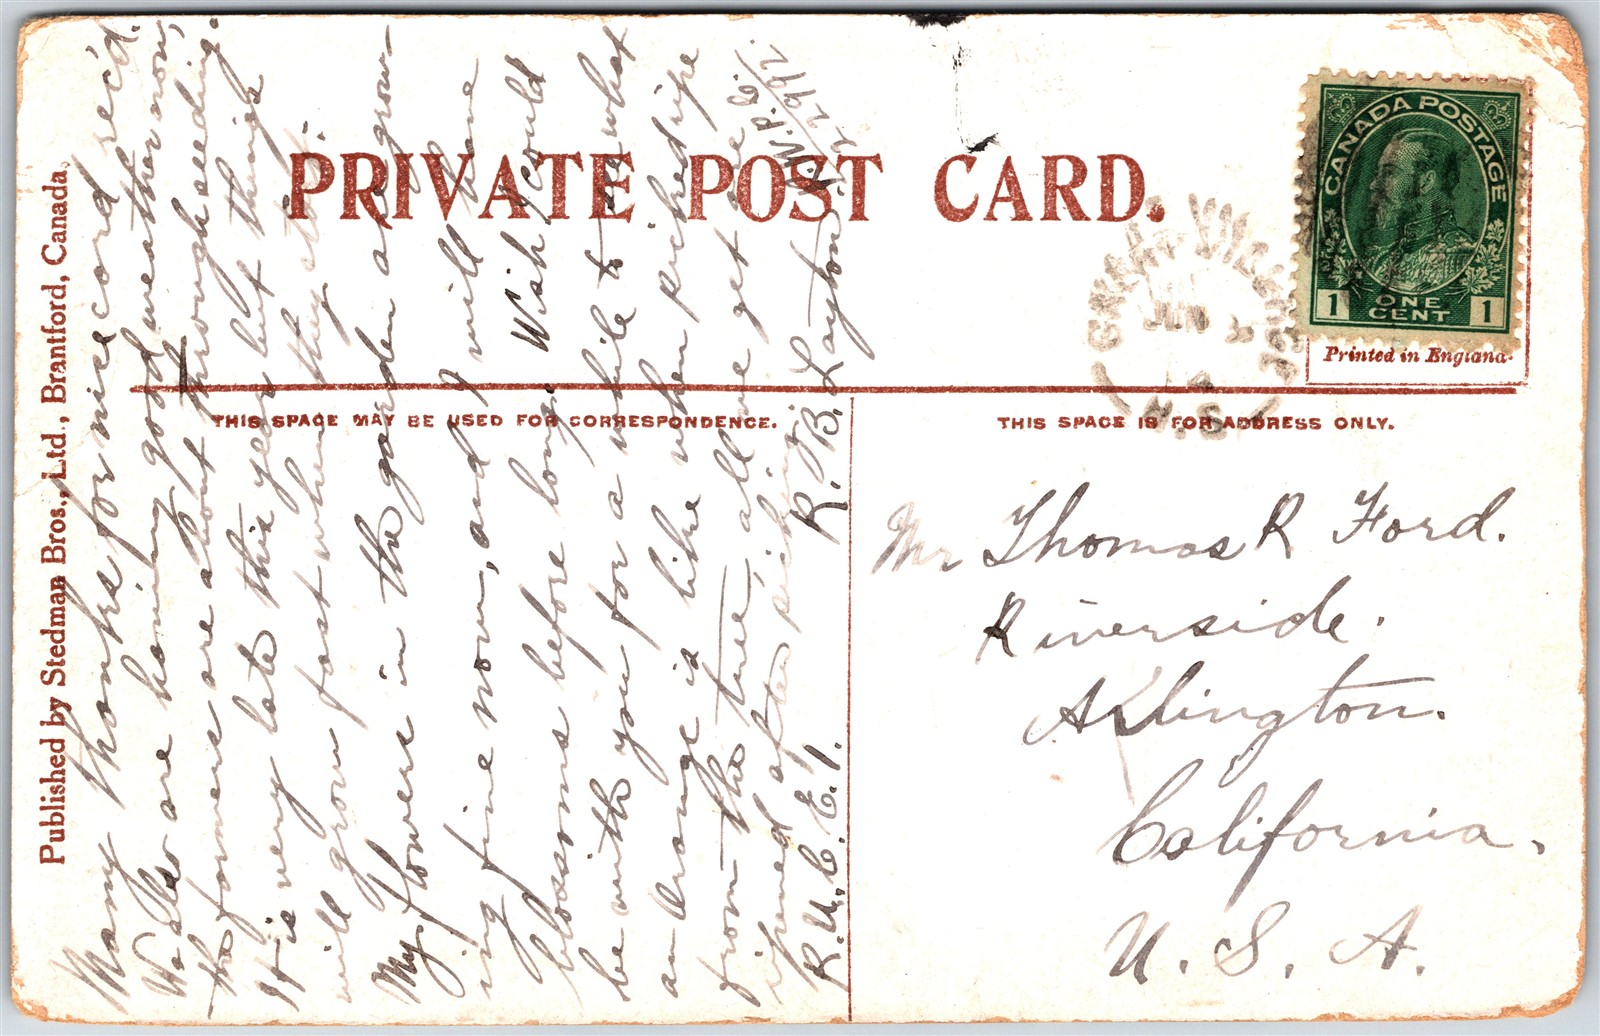 Published by Stedman Bros., Ltd., Brantford, Canada.
PRIVATE POST CARD.
CANADA POSTAGE
1 ONE CENT 1
Printed in England.
GREAT VILLAGE
JUN
N.S.
THIS SPACE MAY BE USED FOR CORRESPONDENCE.
THIS SPACE IS FOR ADDRESS ONLY.
Many thanks for nice card rec'd.
are having good weather now,
the farmers are about through seeding.
It is very late this year but things
will grow fast when they start.
My flowers in the garden are grow-
ing fine now, and I will have
blossoms before long. Wish I could
be with you for a while to see what
an orange is like when picked ripe
from the tree, all we get are
ripened after picking.
R.U.C.E.1. R. B. Layton W.P.C.
2292.
Mr Thomas R Ford.
Riverside.
Arlington.
California.
U. S. A.